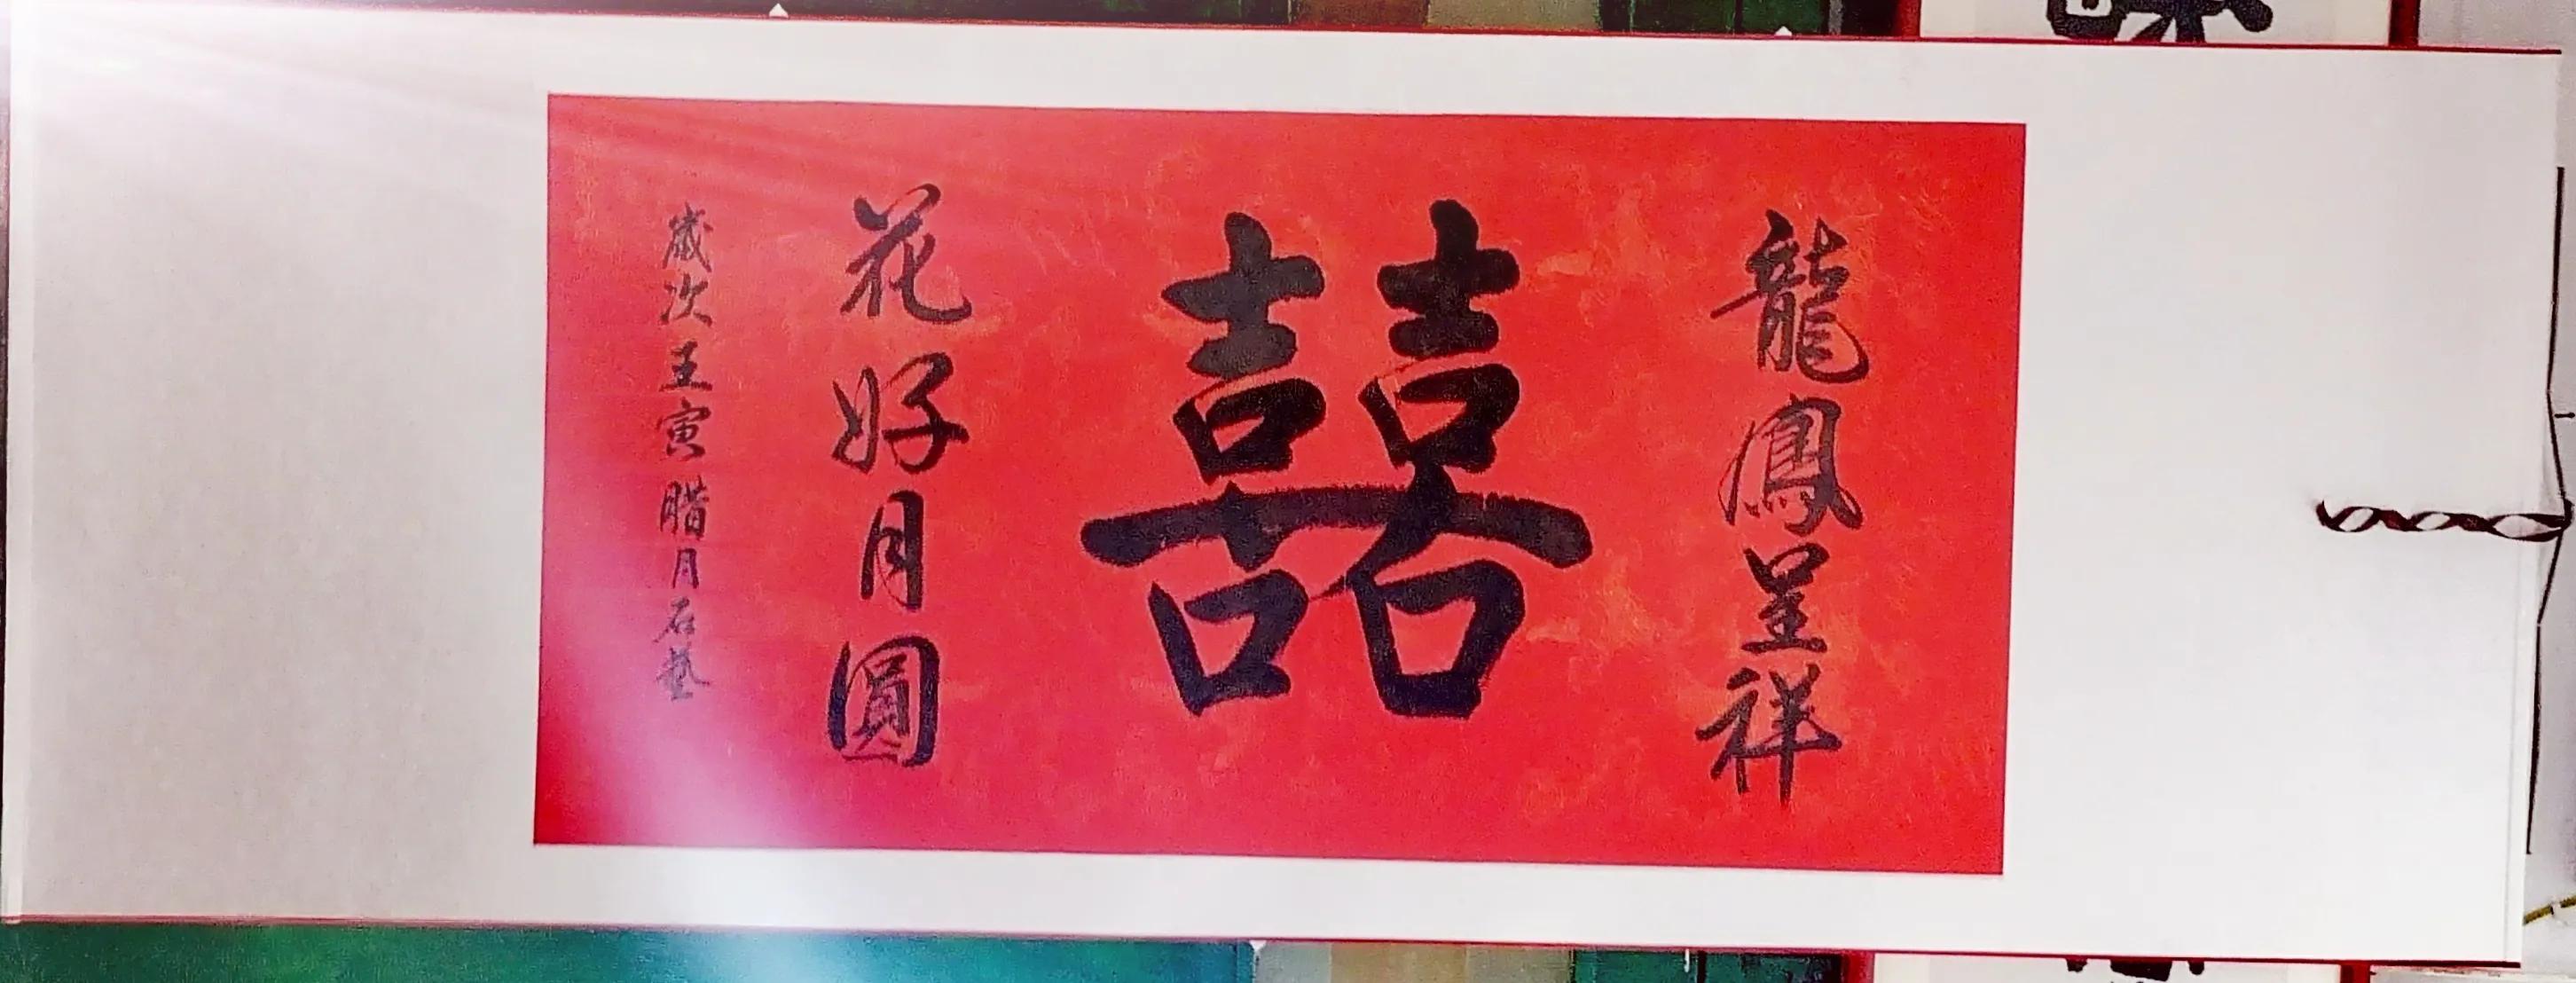 龍鳳呈祥
囍
花好月圓
歲次壬寅腊月石藝